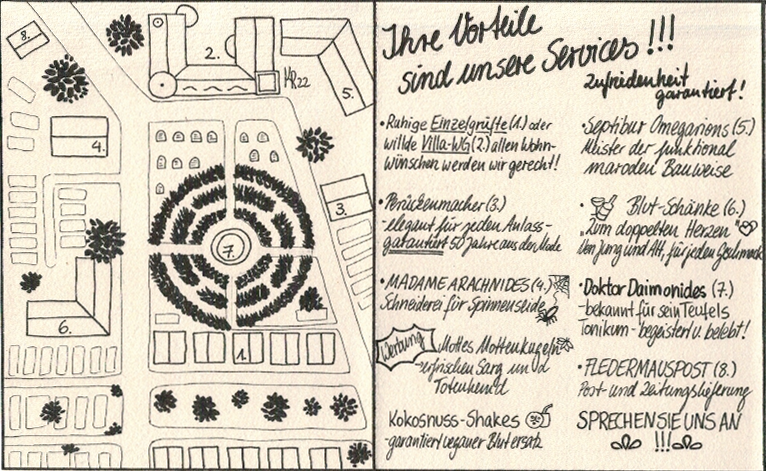 8.
2.
KR22
5.
4.
3.
7.
6.
1.
Ihre Vorteile
sind unsere Services!!!
Zufriedenheit
garantiert!
• Ruhige Einzelgrüfte (1.) oder
willde Villa-WG (2.) allen Wohn-
wünschen werden wir gerecht!
• Perückenmacher (3.)
-elegant für jeden Anlass-
garantiert 50 Jahre aus der Mode
• MADAME ARACHNIDES (4.)
Schneiderei für Spinnenseide
Werbung: Mottes Mottenkugeln
-erfrischen Sarg und
Totenhemd
Kokosnuss-Shakes
-garantiert veganer Blutersatz
• Septibur Omegarions (5.)
Meister der funktional
maroden Bauweise
• Blut-Schänke (6.)
"Zum doppelten Herzen"
Von Jung und Alt, für jeden Geschmack
• Doktor Daimonides (7.)
-bekannt für sein Teufels
Tonikum- begeistert u. belebt!
• FLEDERMAUSPOST (8.)
Post- und Zeitungslieferung
SPRECHEN SIE UNS AN
!!!